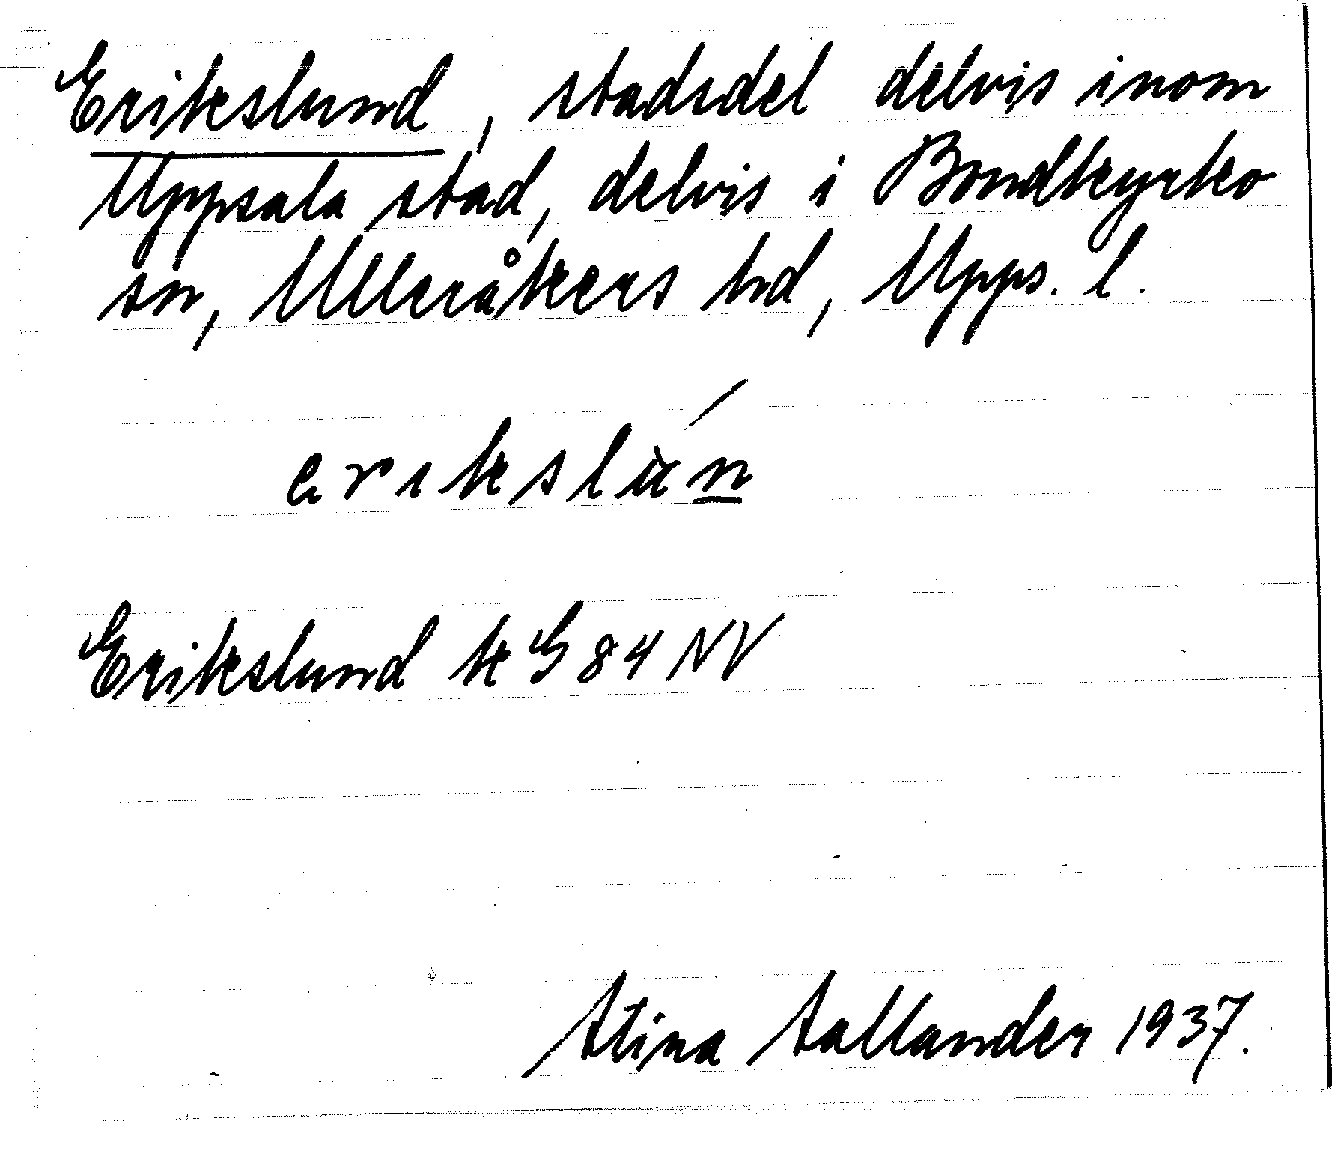 Erikslund, stadsdel delvis inom
Uppsala stad, delvis i Bondkyrko
sn, Ulleråkers hd, Upps. l.
erikslún
Erikslund k G 84 NV
Stina Sallander 1937.